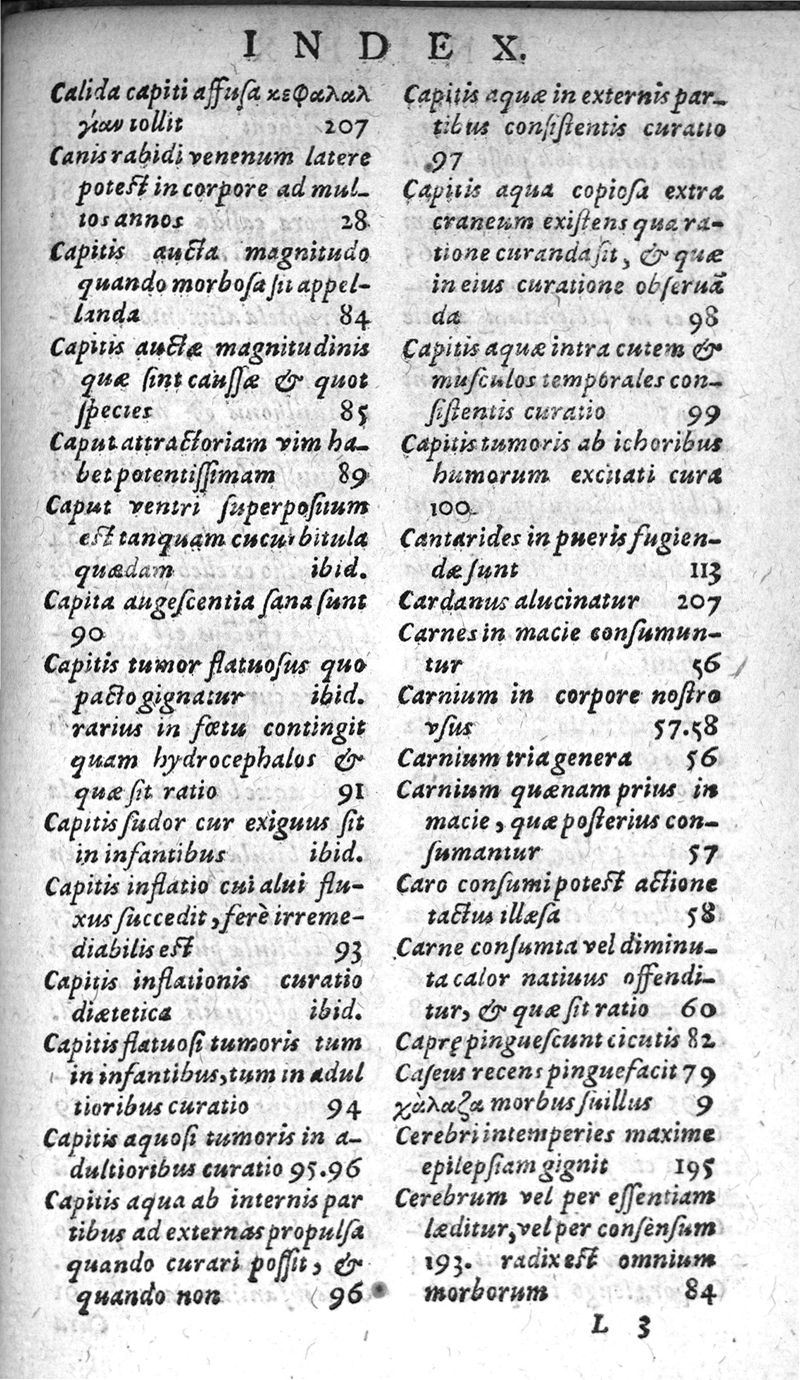 INDEX.
Calida capiti affuſa κεφαλαλ
γίαν tollit 207
Canis rabidi venenum latere
poteſt in corpore ad mul-
tos annos 28
Capitis aucta magnitudo
quando morboſa ſit appel-
landa 84
Capitis auctæ magnitudinis
quæ ſint cauſſæ & quot
ſpecies 85
Caput attractoriam vim ha-
bet potentiſſimam 89
Caput ventri ſuperpoſitum
eſt tanquam cucurbitula
quædam ibid.
Capita augeſcentia ſana ſunt
90
Capitis tumor flatuoſus quo
pacto gignatur ibid.
rarius in fœtu contingit
quam hydrocephalos &
quæ ſit ratio 91
Capitis ſudor cur exiguus ſit
in infantibus ibid.
Capitis inflatio cui alui flu-
xus ſuccedit, ferè irreme-
diabilis eſt 93
Capitis inflationis curatio
diætetica ibid.
Capitis flatuoſi tumoris tum
in infantibus, tum in adul
tioribus curatio 94
Capitis aquoſi tumoris in a-
dultioribus curatio 95.96
Capitis aqua ab internis par
tibus ad externas propulſa
quando curari poſſit, &
quando non 96
Capitis aquæ in externis par-
tibus conſiſtentis curatio
97
Capitis aqua copioſa extra
craneum exiſtens qua ra-
tione curanda ſit, & quæ
in eius curatione obſeruã
da 98
Capitis aquæ intra cutem &
muſculos temporales con-
ſiſtentis curatio 99
Capitis tumoris ab ichoribus
humorum excitati cura
100
Cantarides in pueris fugien-
dæ ſunt 113
Cardanus alucinatur 207
Carnes in macie conſumun-
tur 56
Carnium in corpore noſtro
vſus 57.58
Carnium tria genera 56
Carnium quænam prius in
macie, quæ poſterius con-
ſumantur 57
Caro conſumi poteſt actione
tactus illæſa 58
Carne conſumta vel diminu-
ta calor natiuus offendi-
tur, & quæ ſit ratio 60
Caprę pingueſcunt cicutis 82
Caſeus recens pinguefacit 79
χάλαζα morbus ſuillus 9
Cerebri intemperies maxime
epilepſiam gignit 195
Cerebrum vel per eſſentiam
læditur, vel per conſenſum
193. radix eſt omnium
morborum 84
L 3